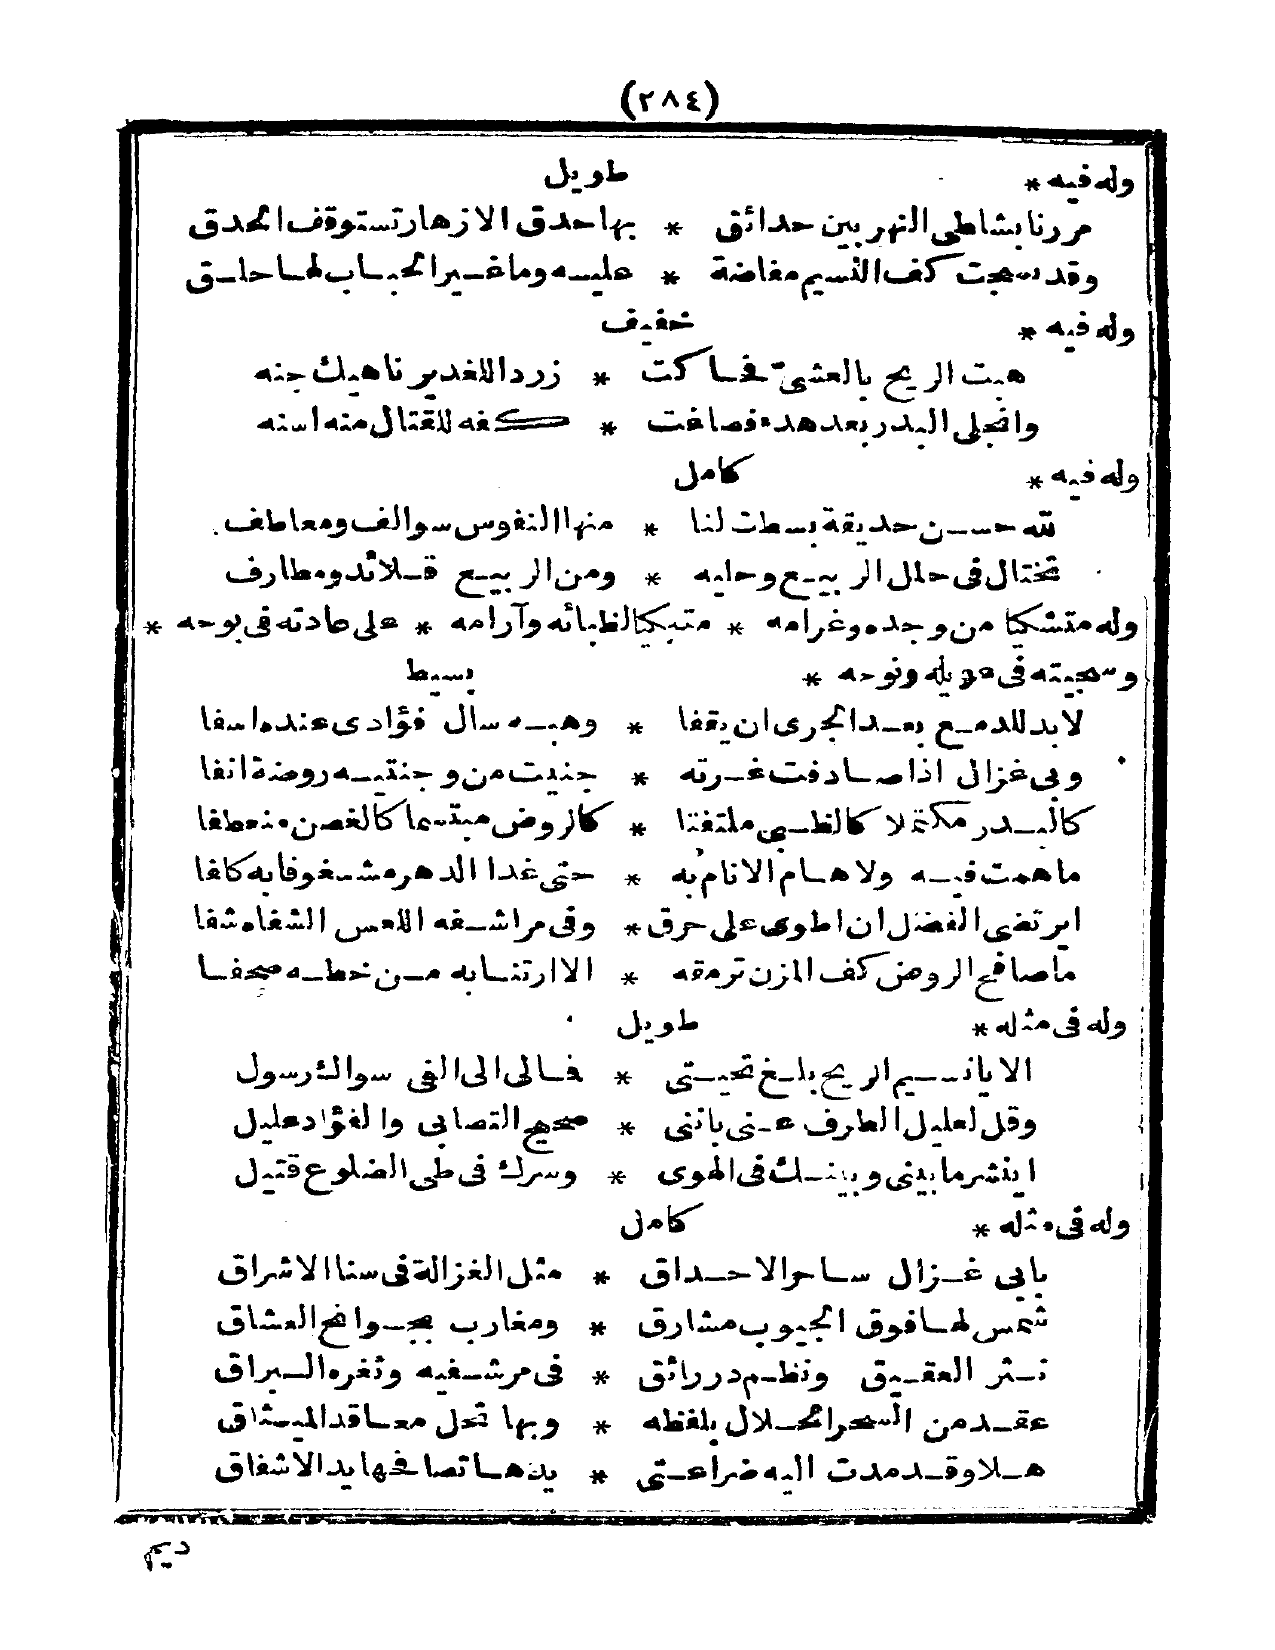 (٢٨٤)
وله فيه * طويل
مررنا بشاطى النهر بين حدائق * بها حدق الازهار تستوقف الحدق
وقد نسجت كف النسيم مفاضة * عليه وما غير الحباب لها حلق
وله فيه * خفيف
هبت الريح بالعشىّ فحاكت * زردا للغدير ناهيك جنه
وانجلى البدر بعد هدء فصاغت * كفه للقتال منه اسنه
وله فيه * كامل
لله حسن حديقة بسطت لنا * منها النفوس سوالف ومعاطف
تختال فى حلل الربيع وحليه * ومن الربيع قلائد ومطارف
وله متشكيا من وجده وغرامه * متبكيا لظبائه وآرامه * على عادته فى بوحه *
وسجيته فى عويله ونوحه * بسيط
لا بد للدمع بعد الجرى ان يقفا * وهبه سال فؤادى عنده اسفا
وبى غزال اذا صادفت غرته * جنيت من وجنتيه روضة انفا
كالبدر مكتملا كالظبى ملتفتا * كالروض مبتسما كالغصن منعطفا
ما همت فيه ولا هام الانام به * حتى غدا الدهر مشغوفا به كلفا
ايرتضى الفضل ان اطوى على حرق * وفى مراشفه اللعس الشفاه شفا
ما صافح الروض كف المزن ترمقه * الا ارتنا به من خطه صحفا
وله فى مثله * طويل
الا يا نسيم الريح بلغ تحيتى * فمالى الى الفى سواك رسول
وقل لعليل الطرف عنى باننى * صحيح التصابى والفؤاد عليل
اينشر ما بينى وبينك فى الهوى * وسرك فى طى الضلوع قتيل
وله فى مثله * كامل
بابى غزال ساحر الاحداق * مثل الغزالة فى سنا الاشراق
شمس لها فوق الجيوب مشارق * ومغارب بجوانح العشاق
نثر العقيق ونظم در رائق * فى مرشفيه وثغره البراق
عقد من السحر الحلال بلفظه * وبها تحل معاقد الميثاق
هلا وقد مدت اليه ضراعتى * يدها تصافحها يد الاشفاق
ديم